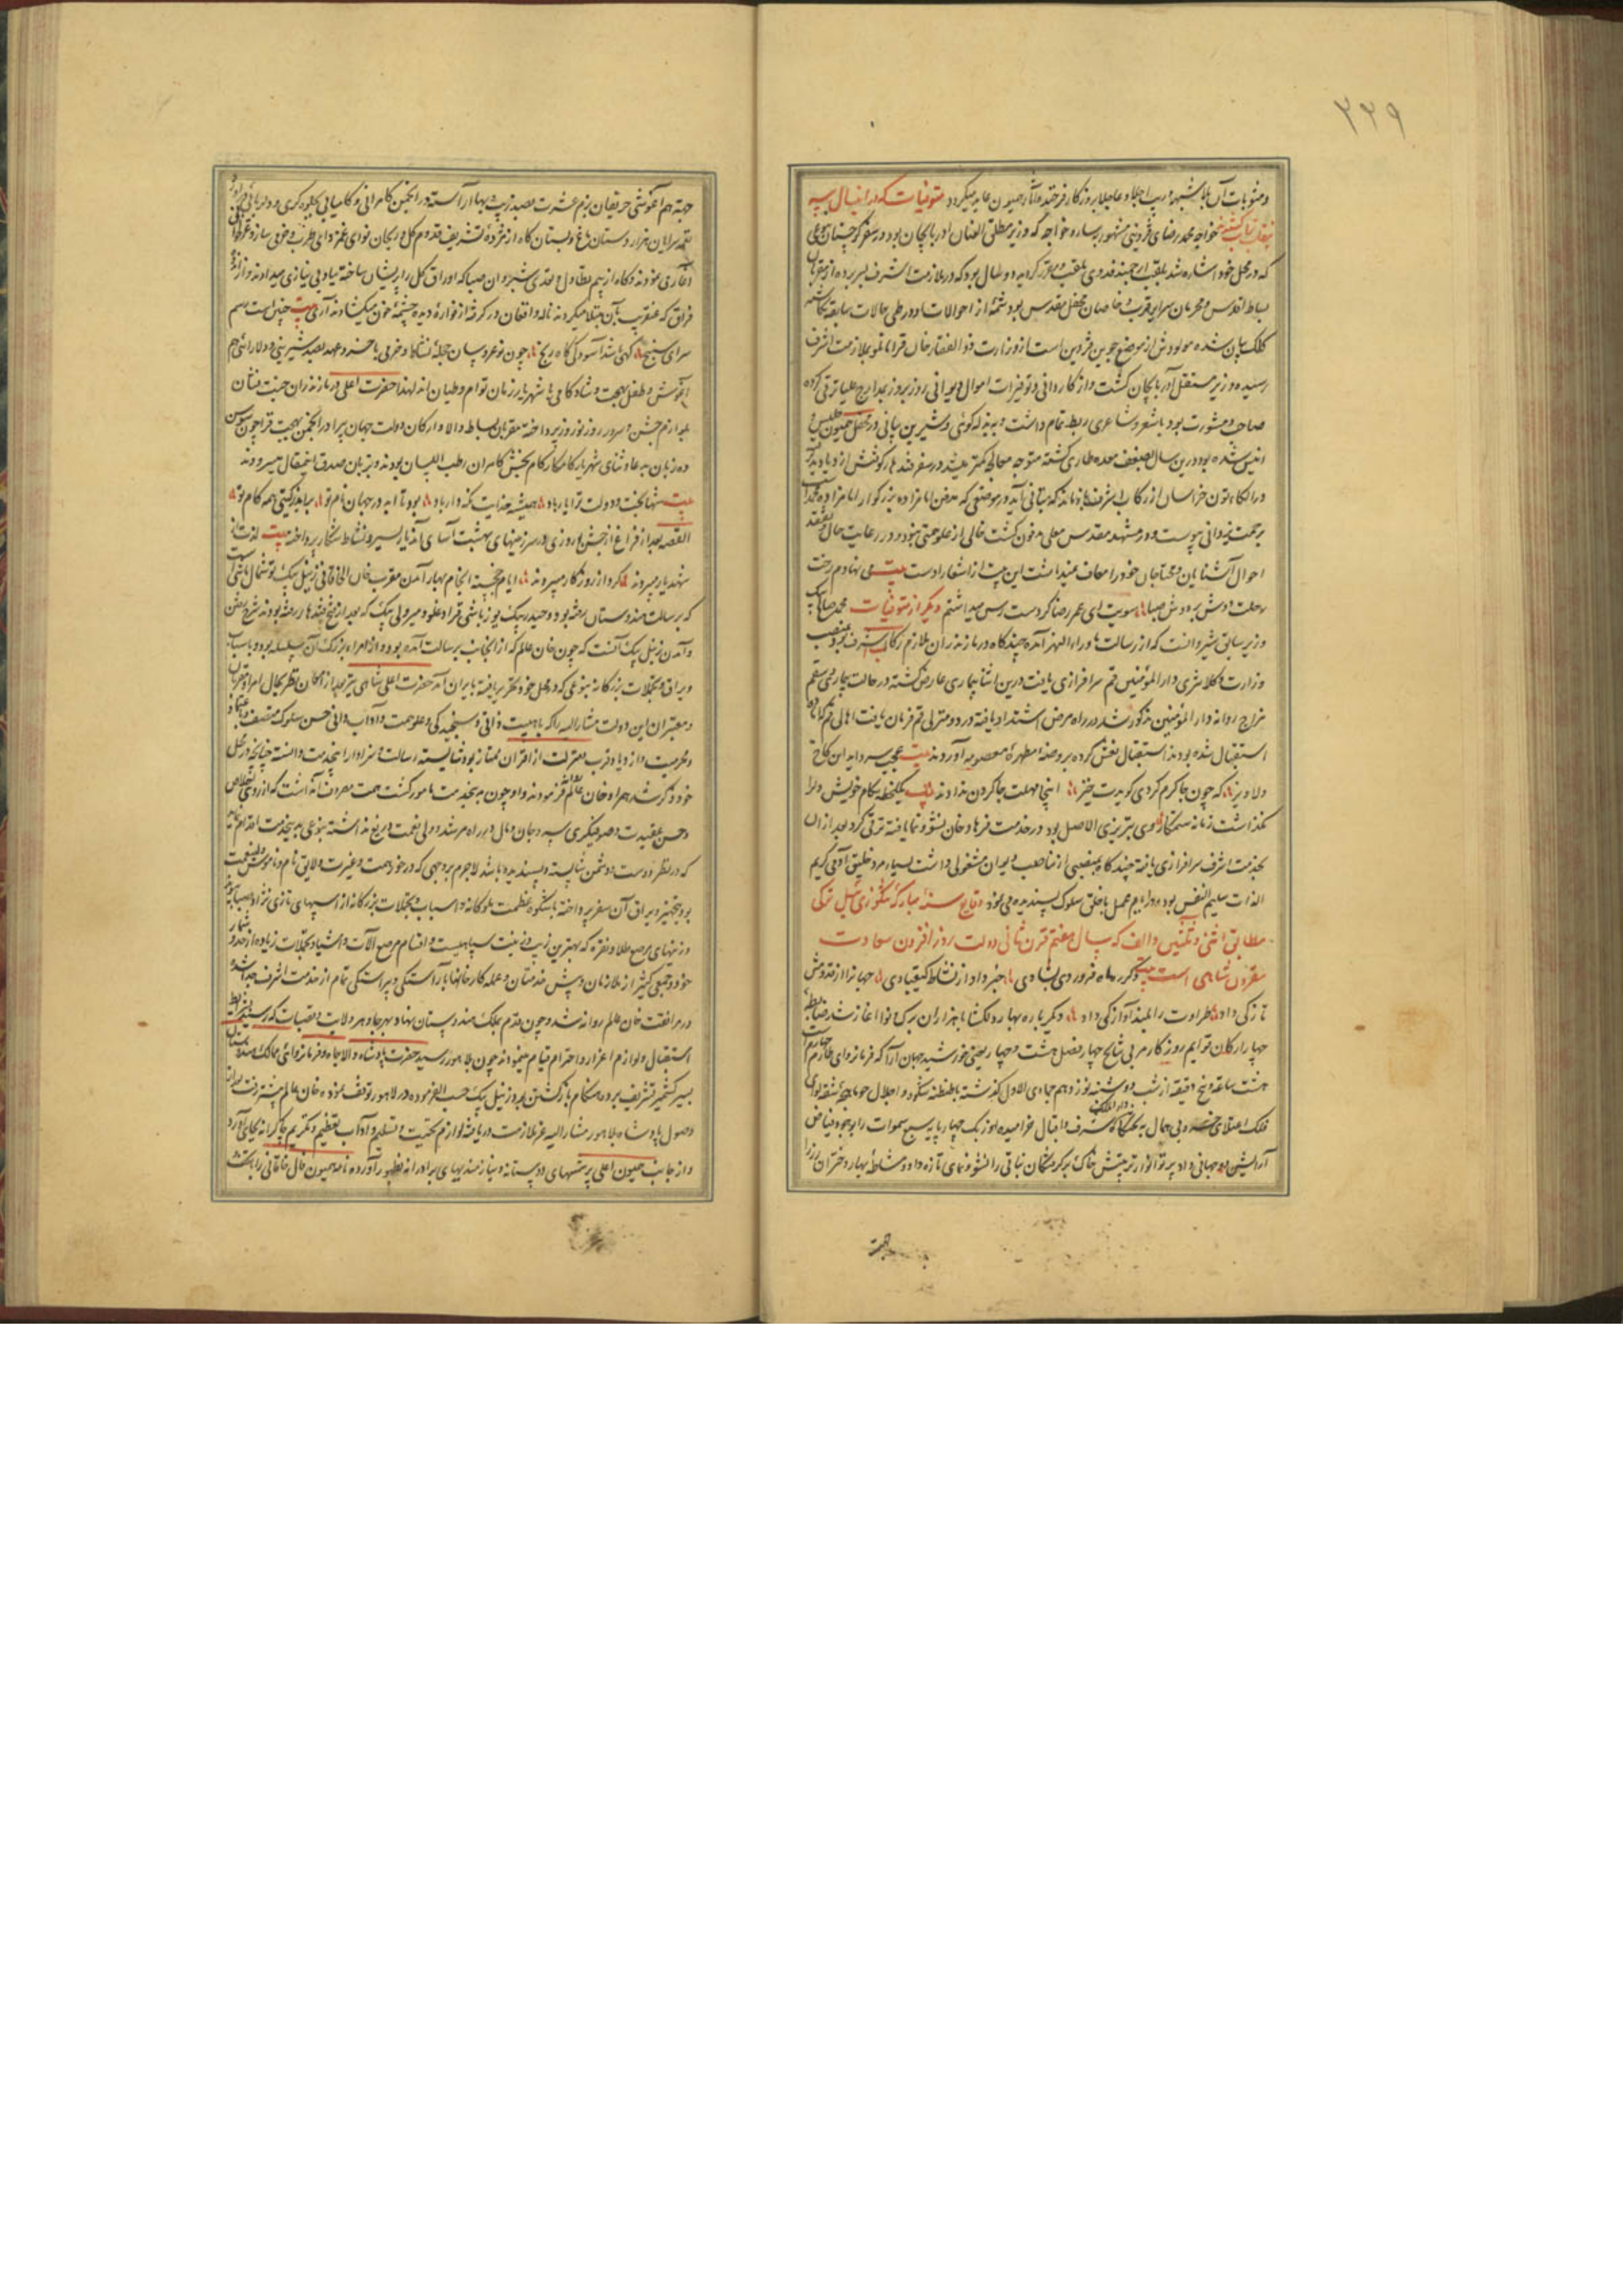 ۲۲۹
ومثوبات آن بلا شبهه و ریب اجلا و عاجلا بروزگار فرخنده آثار همیون عاید میگردد متوفیات که در این سال به
خواجه محمد رضای قزوینی مشهور بساروخواجه که وزیر مطلق العنان آذربایجان بود و در سفر گرجستان
که در محل خود اشاره شد بلقب ارجمند فدوی ملقب و معزز گردید دو سال بود که در ملازمت اشرف بسر برده از مقربان
بساط اقدس و محرمان سرایر قربت و خاصان محفل مقدس بود شمهٔ از احوالات او در طی حالات سابقه
کلک بیان شده مولودش از موضع جوین قزوین است از وزارت ذو الفقار خان قرامانلو بملازمت اشرف
رسیده وزیر مستقل آذربایجان گشت و از کاردانی و توفیرات اموال دیوانی روز بروز بمدارج علیا ترقی کرده
صاحب مشورت بود با شعر و شاعری ربط تمام داشت و بذله گوئی و شیرین بیانی در محفل همیون جلیس و
انیس شده بود درین سال بضعف معده طاری گشته متوجه معالجه کمتر میشد در سفر قندهار کوفتش ازدیاد پذیرفته
در الکاء تون خراسان از رکاب اشرف باز ماند که بتانی آید در موضعی که مدفن امامزاده بزرگوار امامزاده محمد است
برحمت یزدانی پیوست و در مشهد مقدس معلی مدفون گشت خالی از علو همتی نبود و در رعایت حال و تفقد
احوال آشنایان و محتاجان خود را معاف نمیداشت این بیت از اشعار اوست بیت می نهادم رخت
رحلت دوش بر دوش صبا سویت ای عمر رضا گر دست رس میداشتم دیگر از متوفیات محمد صالح بیک
وزیر سابق شیروانست که از رسالت ماوراء النهر آمده چندگاه در مازندران ملازم رکاب اشرف بود بمنصب
وزارت و کلانتری دار المؤمنین قم سرافرازی یافت درین اثنا بیماری عارض گشته در حالت بیماری و سقم
مزاج روانه دار المؤمنین مذکور شد در راه مرض اشتداد یافته در دو منزلی قم فرمان یافت اهالی قم که آماده
استقبال شده بودند استقبال نعش کرده بروضه مطهرهٔ معصومیه آوردند بیت عجب سرداد این کاخ
دلاویز که چون جا گرم کردی گویدت خیز اینجا مهلت جا گرم کردن ندادند یک لحظه بکام خویش ورا
نگذاشت زمانه ستمکار وی تبریزی الاصل بود در خدمت فرهاد خان نشو و نما یافته ترقی کرد بعد از ان
بخدمت اشرف سرافرازی یافته چند گاه بمنصبی از مناصب دیوان مشغولی داشت بسیار مرد خلیق آدمی کریم
الذات سلیم النفس بود در ایام عمل با خلق سلوک پسندیده می نمود وقایع سنهٔ مبارکهٔ تنگوزئیل ترکی
مطابق اثنی و ثلثین و الف که سال هفتم قرن ثانی دولت روز افزون سعادت
مقرون شاهی است بیت دگر ره ماه فروردی بشادی خبر داد از نشاط کیقبادی جهانرا از قدومش
تازگی داد طراوت را بلند آوازگی داد دگر باره بهار دلگشا با هزاران برگ و نوا آغاز شد ضابط
چهار ارکان قوایم روزگار مربی نتایج چهار فصل هشت و چهار یعنی خورشید جهان آرا که فرمانروای طارم چهارم است
هشت ساعت و پنج دقیقه از شب دوشنبه نوزدهم جمادی الاول گذشته با طنطنه شکوه و اجلال
فلک اعتلای به تختگاه شرف و اقبال خرامیده اورنگ چهار پایه سبع سموات را بوجود فیاض
آرایش جهانی داد پرتو انوار تربیتش خاک بر گرفتگان نباتی را نشو و نمای تازه داد و مشاطهٔ بهار دختران رز را
جهة
جهة هم آغوشی حریفان بزم عشرت بصد زیب و بها آراسته در انجمن کامرانی و کامیابی بجلوه گری و دلربائی در آورد
نغمه سرایان هزار دستان باغ و بستان گاه از مژدهٔ تشریف قدوم گل و ریحان نوای غمزدای طرب و خرمی ساز و
آغازی نمودند و گاه از بیم تطاول و تعدی شبروان صبا که اوراق گل را پریشان ساخته بباد بی نیازی میدادند
فراق که عنقریب بآن مبتلا میگردند ناله و افغان در گرفته از فوارهٔ دیده چشمهٔ خون میگشادند آری بیت چنین است رسم
سرای سپنج گهی شاد و آسودگی گاه رنج چون نوعروسان حجلهٔ نشاط و خرمی با خسرو عهد بصد شیرینی و دلارائی هم
آغوش و طفل بهجت و شادکامی با شهریار زمان توام و طپان اند لهذا حضرت اعلی در مازندران جنت نشان
بلوازم جشن و سرور روز نوروز پرداخته مقربان بساط والا و ارکان دولت جهان پیرا در انجمن بهجت قرا چون سوسن
ده زبان بدعا و ثنای شهریار کامکار کام بخش کامران رطب اللسان بودند و بزبان صدق این مقال میسرودند
بیت شها بخت و دولت ترا یار باد همیشه خدایت نگه دار باد بود تا ابد در جهان نام تو برآید ز گیتی همه کام تو
القصه بعد از فراغ از جشن نوروزی در سرزمینهای بهشت آسای آن دیار بسیر و نشاط شکار پرداختند بیت
سپردند گرد از روزگار میبردند ایام خجسته انجام بهار آمدن مقرب خان الخاقانی زینل بیک توشمال باشی
که برسالت هندوستان رفته بود و حیدر بیک یوزباشی قراداغلو و میر ولی بیک که بعد از فتح قندهار رفته بودند شرح رفتن
و آمدن زینل بیک آنست که چون خان عالم که از آنجانب برسالت آمده بود و از امراء بزرگ آن سلسله بود و با اسباب
و یراق و تجملات بزرگانه بنوعی که در محل خود تحریر یافته بایران آمد حضرت اعلی شاهی نیز بعد از امعان نظر بحال امراء و مقربان
و معتبران این دولت مشار الیه را که باهلیت ذاتی و سنجیدگی و علو همت و آداب دانی و حسن سلوک متصف و باعتماد
و محرمیت و ازدیاد قرب منزلت از اقران ممتاز بود شایستهٔ رسالت و سزاوار اینخدمت دانسته چنانچه در محل
خود ذکر شد همراه خان عالم فرمودند و او چون بدینخدمت مامور گشت همت مصروف آن داشت که از روی اخلاص
و حسن عقیدت و صوفیگری سر و جان و مال در راه مرشد و ولی نعمت دریغ نداشته بنوعی بدینخدمت اقدام نماید
که در نظر دوست و دشمن شایسته و پسندیده باشد لاجرم بوجهی که در خور همت و غیرت و لایق نام و ناموس ولی نعمت
بود بتجهیز و یراق آن سفر پرداخته با شکوه و عظمت ملوکانه و اسباب و تجملات بزرگانه از اسپهای تازی نژاد
و زینهای مرصع طلا و نقره که بهترین زیب و زینت سپاهیست و اقسام مرصع آلات و اشیاء و تجملات زیاده از حد و شمار
خود و جمعی کثیر از ملازمان و پیش خدمتان و عمله کارخانها بآراستگی و پیراستگی تمام از خدمت اشرف جدا شده
در مرافقت خان عالم روانه شد و چون قدم بملک هندوستان نهاد و بهر جا و هر ولایت و قصبات که رسید بشرایط
استقبال و لوازم اعزاز و احترام قیام مینمودند چون بلاهور رسید حضرت پادشاه والا جاه و فرمانروای ممالک هندوستان
بسیر کشمیر تشریف برده هنگام بازگشتن بود و زینل بیک حسب الفرموده در لاهور توقف نموده خان عالم پیشتر رفت بعد از
وصول پادشاه بلاهور مشار الیه عز ملازمت دریافته لوازم تحیت و تسلیم و آداب تعظیم و تکریم چاکرانه بجای آورد
و از جانب همیون اعلی پرسشهای دوستانه و نیازمندیهای برادرانه بظهور آورده نامه همیون فال خاقانی را با تحف